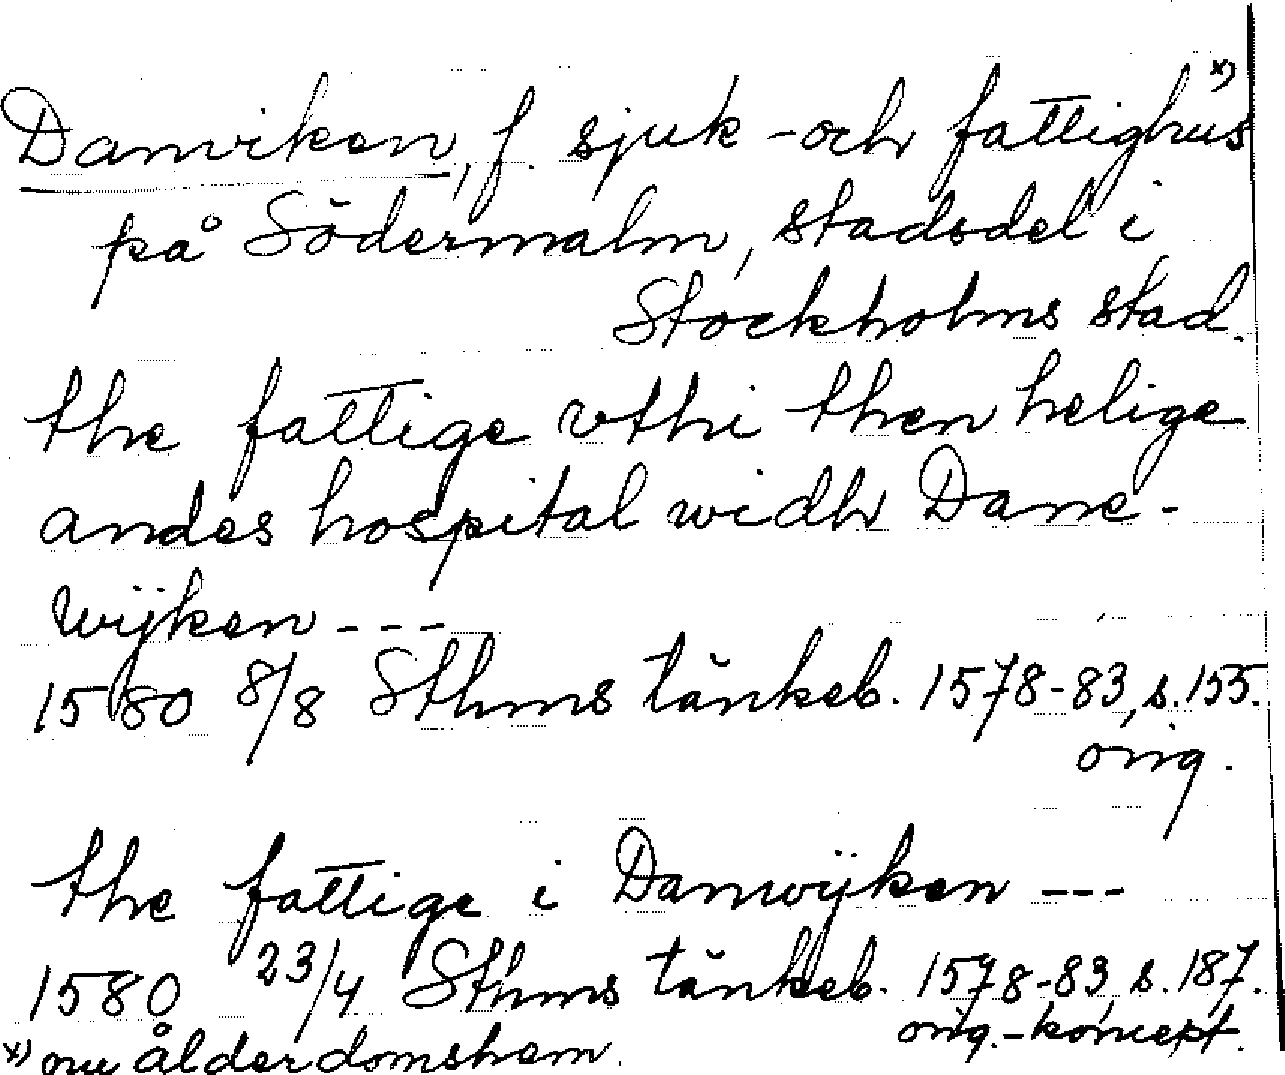 Danviken, f. sjuk- och fattighus x)
på Södermalm, stadsdel i
Stockholms stad.
the fattige vthi then helige
andes hospital widh Dane-
wijken ---
1580 8/8 Sthms tänkeb. 1578-83, s. 155.
orig.
the fattige i Danwijken ---
1580 23/4 Sthms tänkeb. 1578-83, s. 187.
orig.-koncept.
x) nu ålderdomshem.